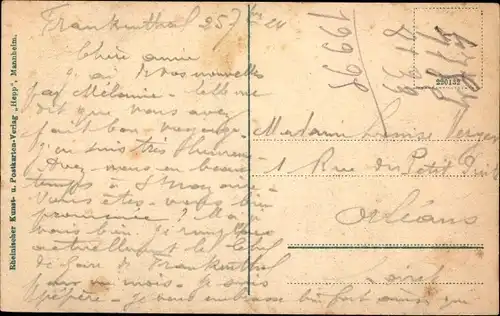 Frankenthal 25 7bre 24
Chère amie
j'ai de vos nouvelles
par Mélanie elle me
dit que vous avez
fait bon voyage
j'en suis très heureux
Avez-vous eu beau
temps à
Vous êtes-vous bien
promenée ? Moi
vais bien. Je remplace
actuellement le Chef
de Gare de Frankenthal
pour un mois - je suis
pépère - je vous embrasse bien fort ainsi que
Madame Louise
1 Rue du Petit Puits
Orléans
Loiret
19998
220152
Rheinischer Kunst- u. Postkarten-Verlag „Hepp", Mannheim.